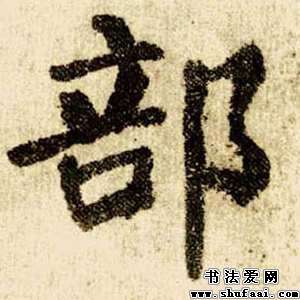 部
书法爱网
www.shufaai.com